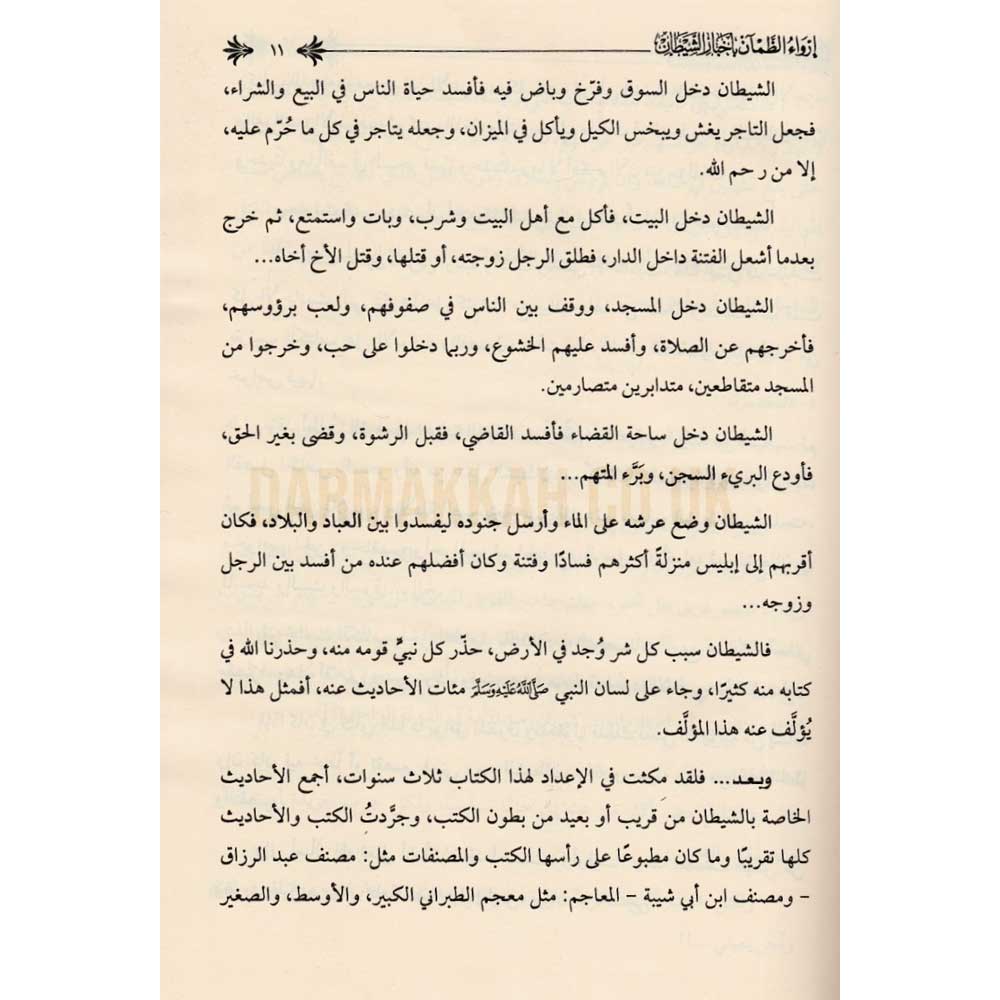 إرواء الظمآن بأخبار الشيطان
١١
الشيطان دخل السوق وفرّخ وباض فيه فأفسد حياة الناس في البيع والشراء،
فجعل التاجر يغش ويبخس الكيل ويأكل في الميزان، وجعله يتاجر في كل ما حُرّم عليه،
إلا من رحم الله.
الشيطان دخل البيت، فأكل مع أهل البيت وشرب، وبات واستمتع، ثم خرج
بعدما أشعل الفتنة داخل الدار، فطلق الرجل زوجته، أو قتلها، وقتل الأخ أخاه...
الشيطان دخل المسجد، ووقف بين الناس في صفوفهم، ولعب برؤوسهم،
فأخرجهم عن الصلاة، وأفسد عليهم الخشوع، وربما دخلوا على حب، وخرجوا من
المسجد متقاطعين، متدابرين متصارمين.
الشيطان دخل ساحة القضاء فأفسد القاضي، فقبل الرشوة، وقضى بغير الحق،
فأودع البريء السجن، وبَرَّء المتهم...
DARMAKKAH.CO.UK
الشيطان وضع عرشه على الماء وأرسل جنوده ليفسدوا بين العباد والبلاد، فكان
أقربهم إلى إبليس منزلةً أكثرهم فسادًا وفتنة وكان أفضلهم عنده من أفسد بين الرجل
وزوجه...
فالشيطان سبب كل شر وُجد في الأرض، حذّر كل نبيٍّ قومه منه، وحذرنا الله في
كتابه منه كثيرًا، وجاء على لسان النبي صَلَّاللَّهُعَلَيْهِوَسَلَّمَ مئات الأحاديث عنه، أفمثل هذا لا
يُؤلَّف عنه هذا المؤلَّف.
وبعد... فلقد مكثت في الإعداد لهذا الكتاب ثلاث سنوات، أجمع الأحاديث
الخاصة بالشيطان من قريب أو بعيد من بطون الكتب، وجرَّدتُ الكتب والأحاديث
كلها تقريبًا وما كان مطبوعًا على رأسها الكتب والمصنفات مثل: مصنف عبد الرزاق
- ومصنف ابن أبي شيبة - المعاجم: مثل معجم الطبراني الكبير، والأوسط، والصغير